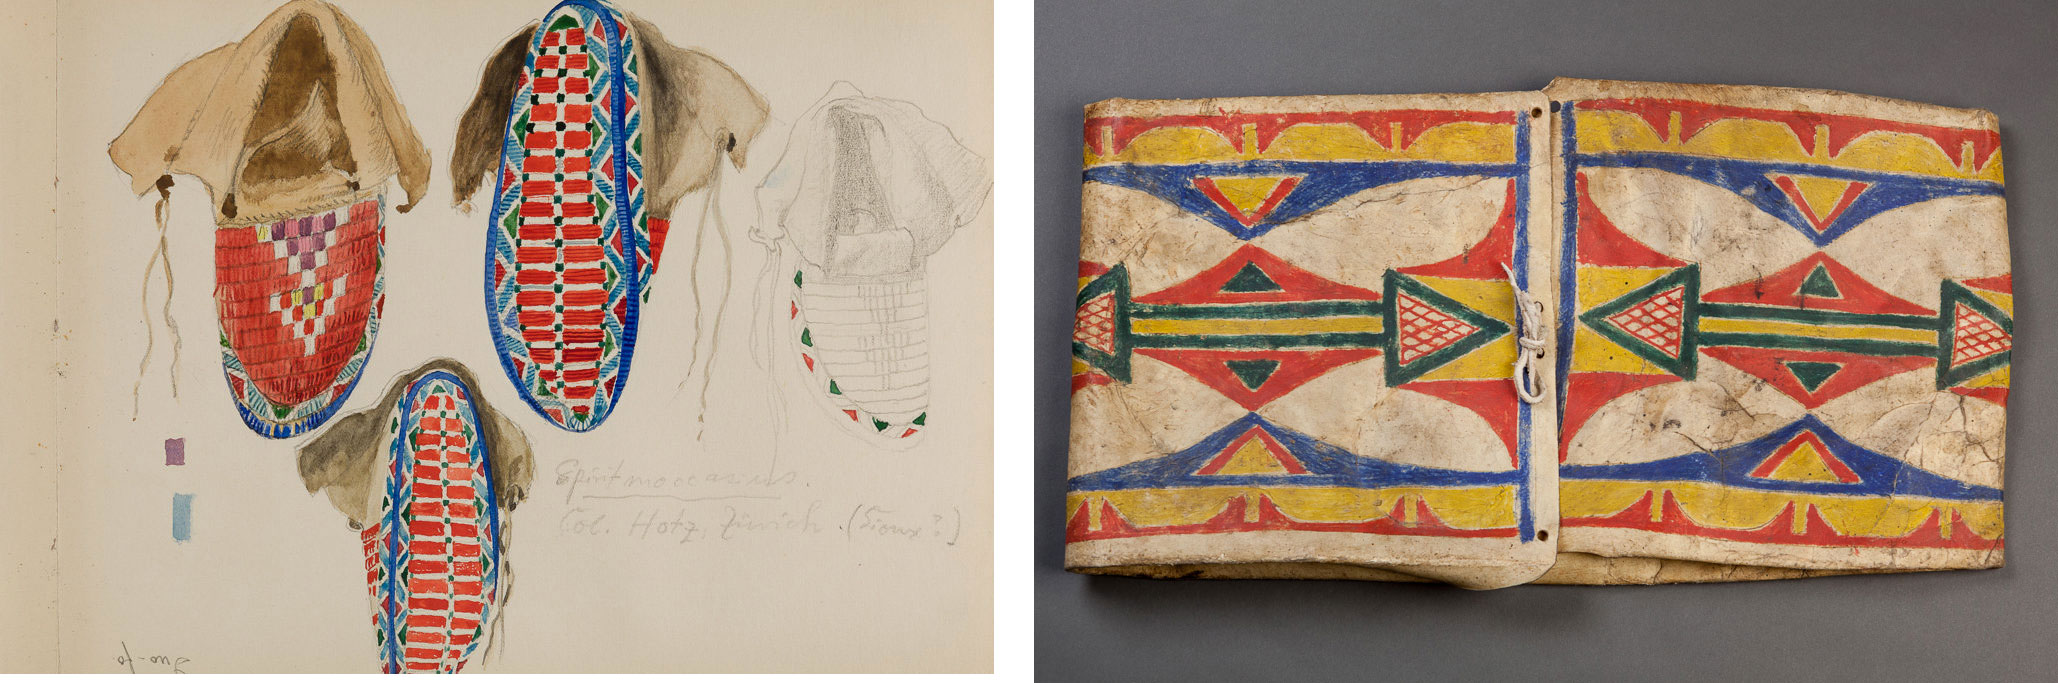 Spirit moccasins.
Col. Hotz, Zürich. (Sioux?)